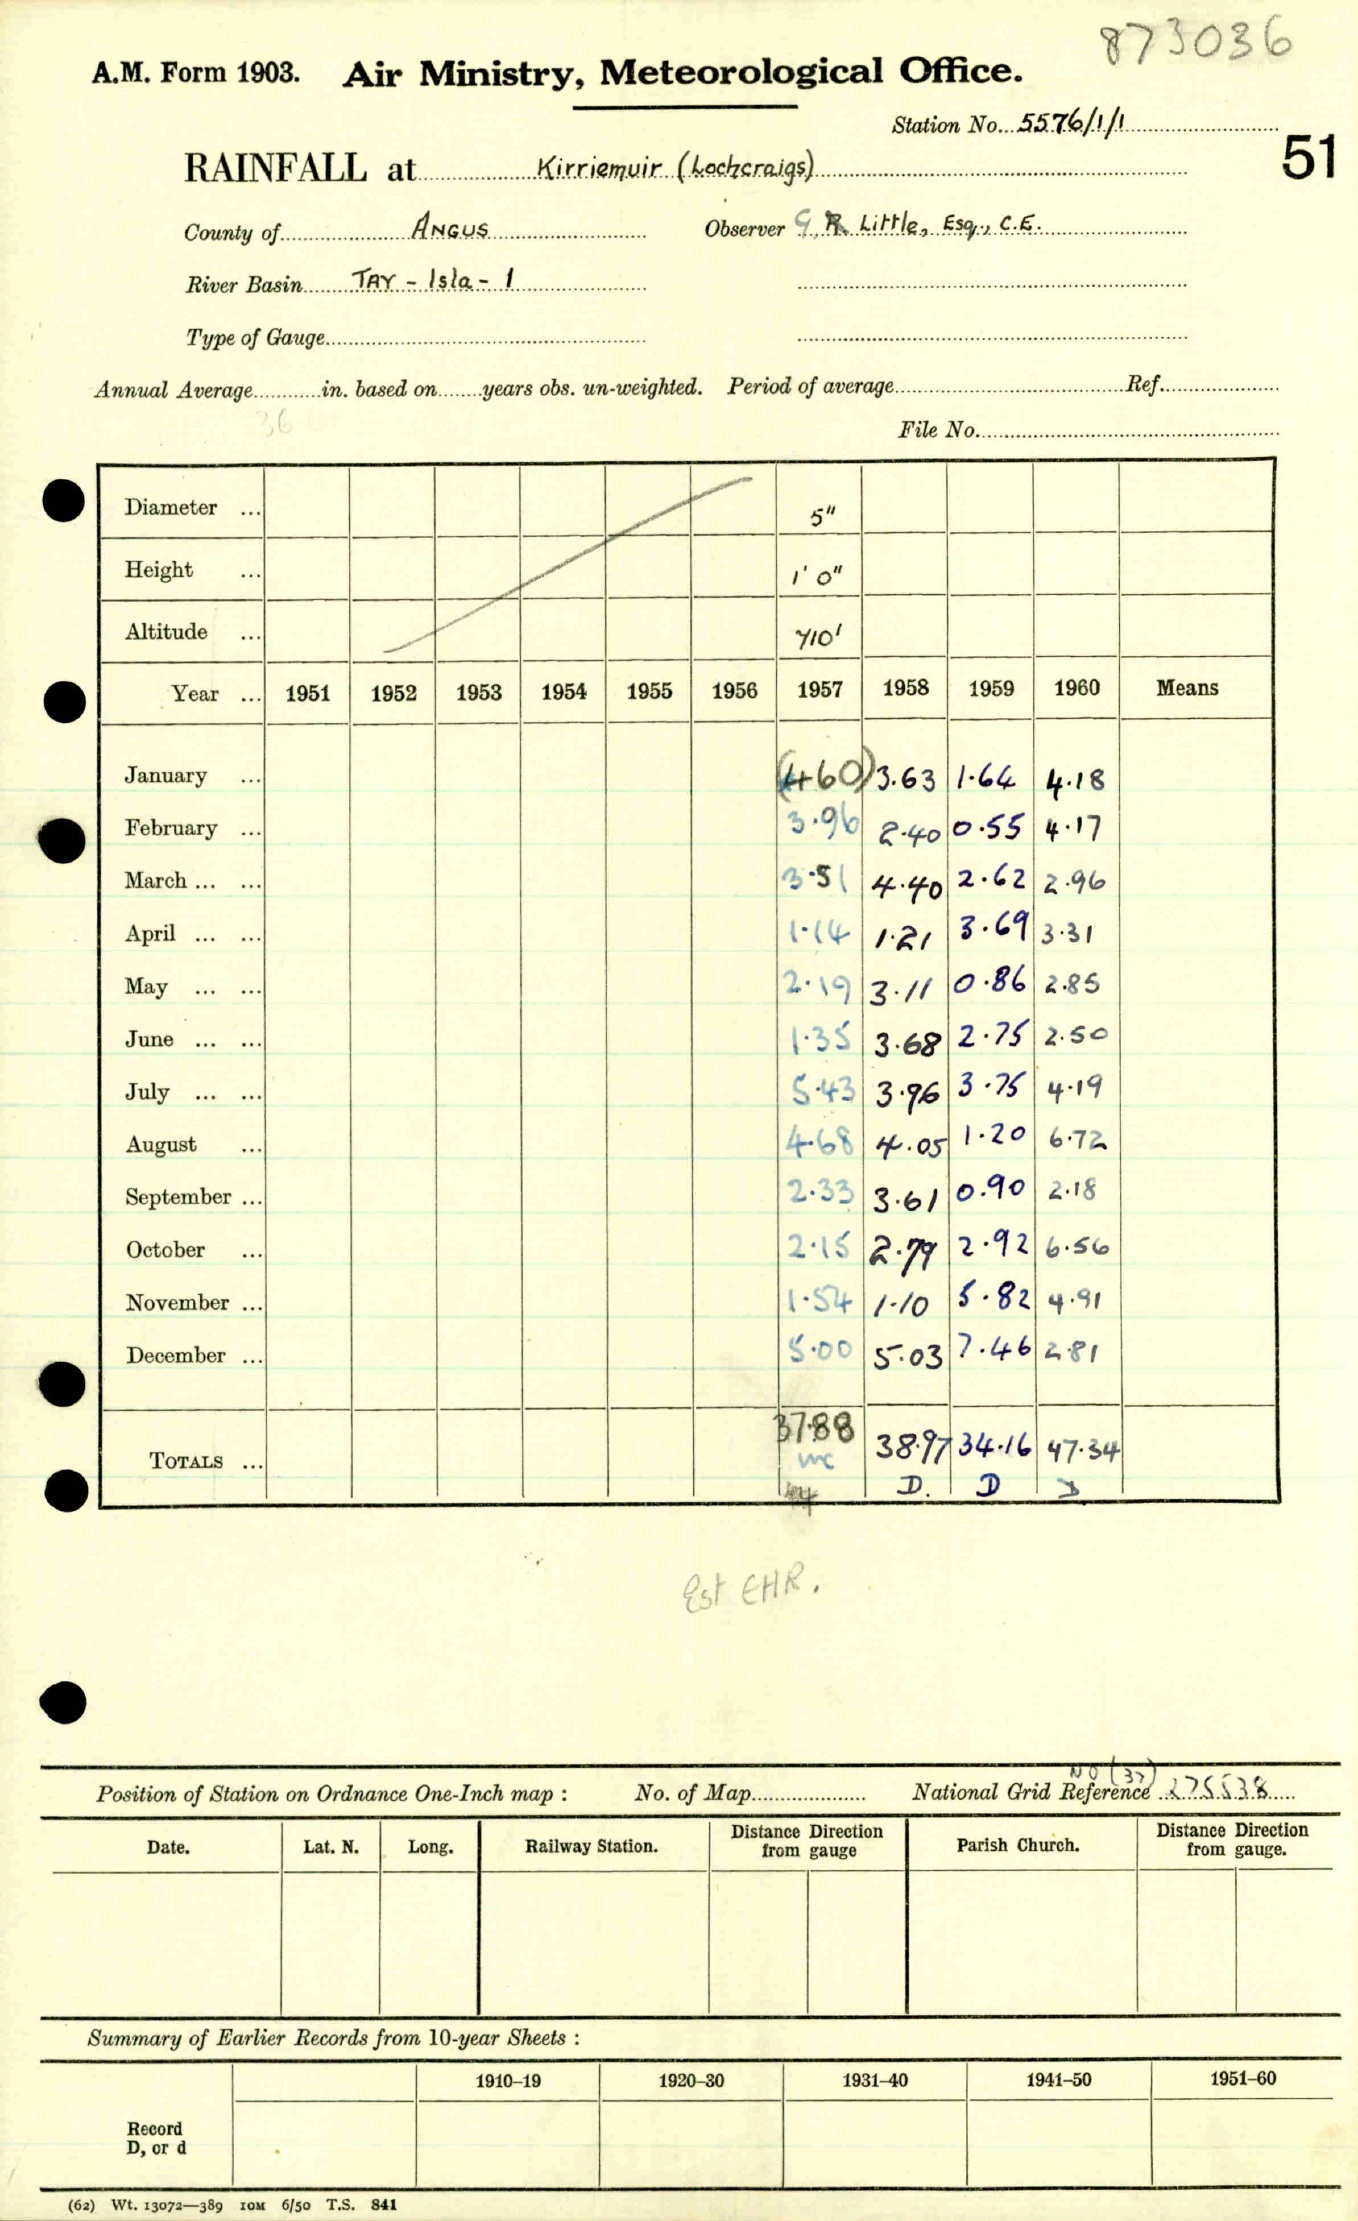 873036
A.M. Form 1903. Air Ministry, Meteorological Office.
Station No. 5576/1/1
51
RAINFALL at Kirriemuir (Lochcraigs)
County of ANGUS Observer G. R. Little, Esq., C.E.
River Basin TAY - Isla - 1
Type of Gauge
Annual Average in. based on years obs. un-weighted. Period of average Ref.
36
File No.
Diameter ... 5"
Height ... 1' 0"
Altitude ... 710'
Year ... 1951 1952 1953 1954 1955 1956 1957 1958 1959 1960 Means
January ... (4.60) 3.63 1.64 4.18
February ... 3.96 2.40 0.55 4.17
March ... ... 3.51 4.40 2.62 2.96
April ... ... 1.14 1.21 3.69 3.31
May ... ... 2.19 3.11 0.86 2.85
June ... ... 1.35 3.68 2.75 2.50
July ... ... 5.43 3.96 3.75 4.19
August ... 4.68 4.05 1.20 6.72
September ... 2.33 3.61 0.90 2.18
October ... 2.15 2.79 2.92 6.56
November ... 1.54 1.10 5.82 4.91
December ... 5.00 5.03 7.46 2.81
TOTALS ... 37.88 38.97 34.16 47.34
inc D. D D
Est EHR.
NO (37)
Position of Station on Ordnance One-Inch map : No. of Map National Grid Reference 275538
Date. Lat. N. Long. Railway Station. Distance Direction from gauge Parish Church. Distance Direction from gauge.
Summary of Earlier Records from 10-year Sheets :
1910–19 1920–30 1931–40 1941–50 1951–60
Record
D, or d
(62) Wt. 13072—389 10M 6/50 T.S. 841